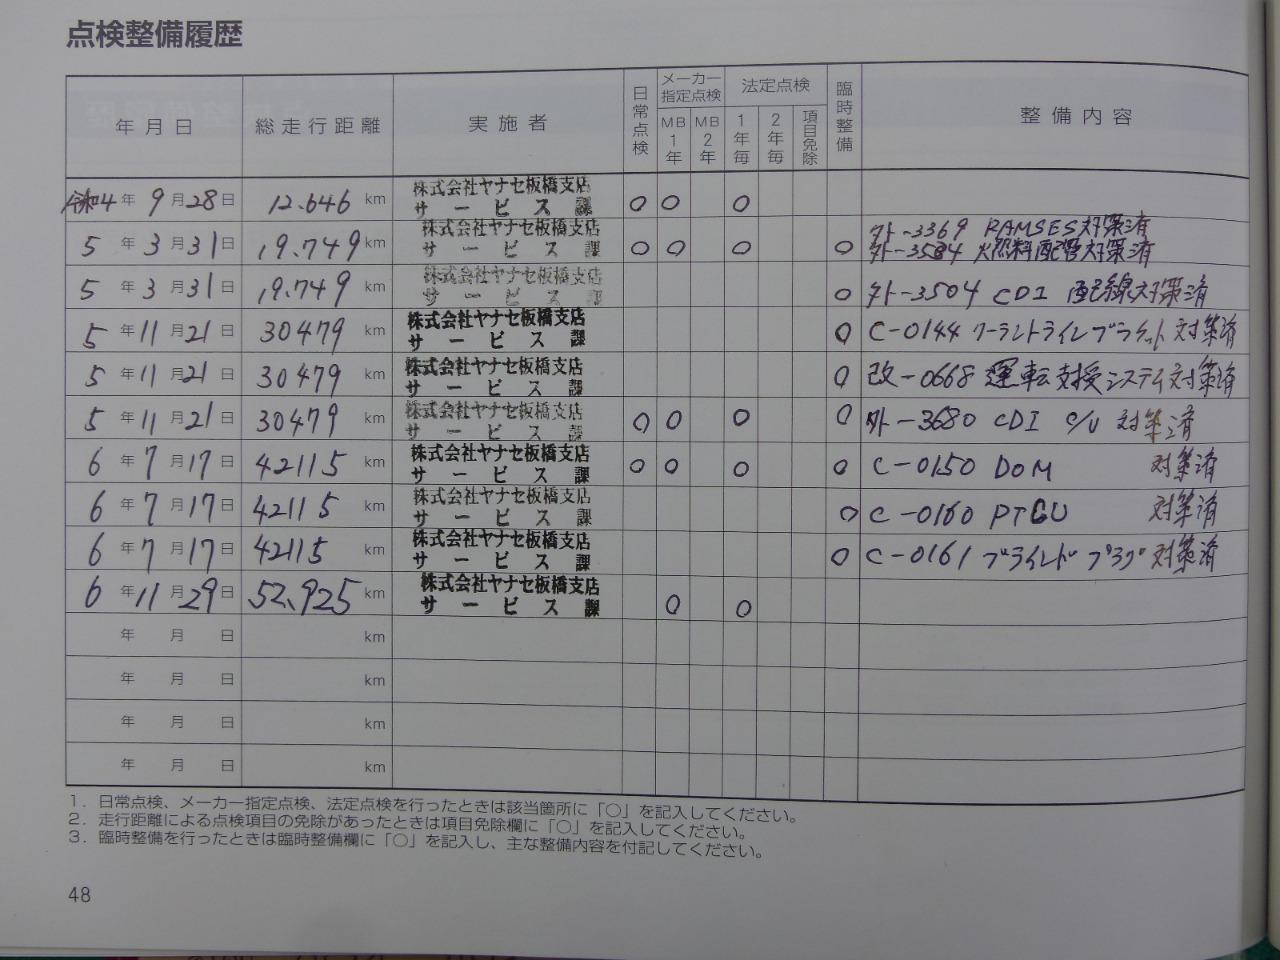 点検整備履歴
年月日 総走行距離 実施者 日常点検 メーカー指定点検 MB1年 MB2年 法定点検 1年毎 2年毎 項目免除 臨時整備 整備内容
令和4年 9月28日 12.646 km 株式会社ヤナセ板橋支店 サービス課 ○ ○ ○
5年 3月31日 19.749 km 株式会社ヤナセ板橋支店 サービス課 ○ ○ ○ ○ 外-3369 RAMSES対策済
外-3584 燃料配管対策済
5年 3月31日 19.749 km 株式会社ヤナセ板橋支店 サービス課 ○ 外-3504 CDI 配線対策済
5年11月21日 30479 km 株式会社ヤナセ板橋支店 サービス課 ○ C-0144 クーラントラインブラケット対策済
5年11月21日 30479 km 株式会社ヤナセ板橋支店 サービス課 ○ 改-0668 運転支援システム対策済
5年11月21日 30479 km 株式会社ヤナセ板橋支店 サービス課 ○ ○ ○ ○ 外-3680 CDI C/U 対策済
6年 7月17日 42115 km 株式会社ヤナセ板橋支店 サービス課 ○ ○ ○ ○ C-0150 DOM 対策済
6年 7月17日 42115 km 株式会社ヤナセ板橋支店 サービス課 ○ C-0160 PTCU 対策済
6年 7月17日 42115 km 株式会社ヤナセ板橋支店 サービス課 ○ C-0161 ブラインドプラグ対策済
6年11月29日 52.925 km 株式会社ヤナセ板橋支店 サービス課 ○ ○
年 月 日 km
年 月 日 km
年 月 日 km
年 月 日 km
1．日常点検、メーカー指定点検、法定点検を行ったときは該当箇所に「○」を記入してください。
2．走行距離による点検項目の免除があったときは項目免除欄に「○」を記入してください。
3．臨時整備を行ったときは臨時整備欄に「○」を記入し、主な整備内容を付記してください。
48